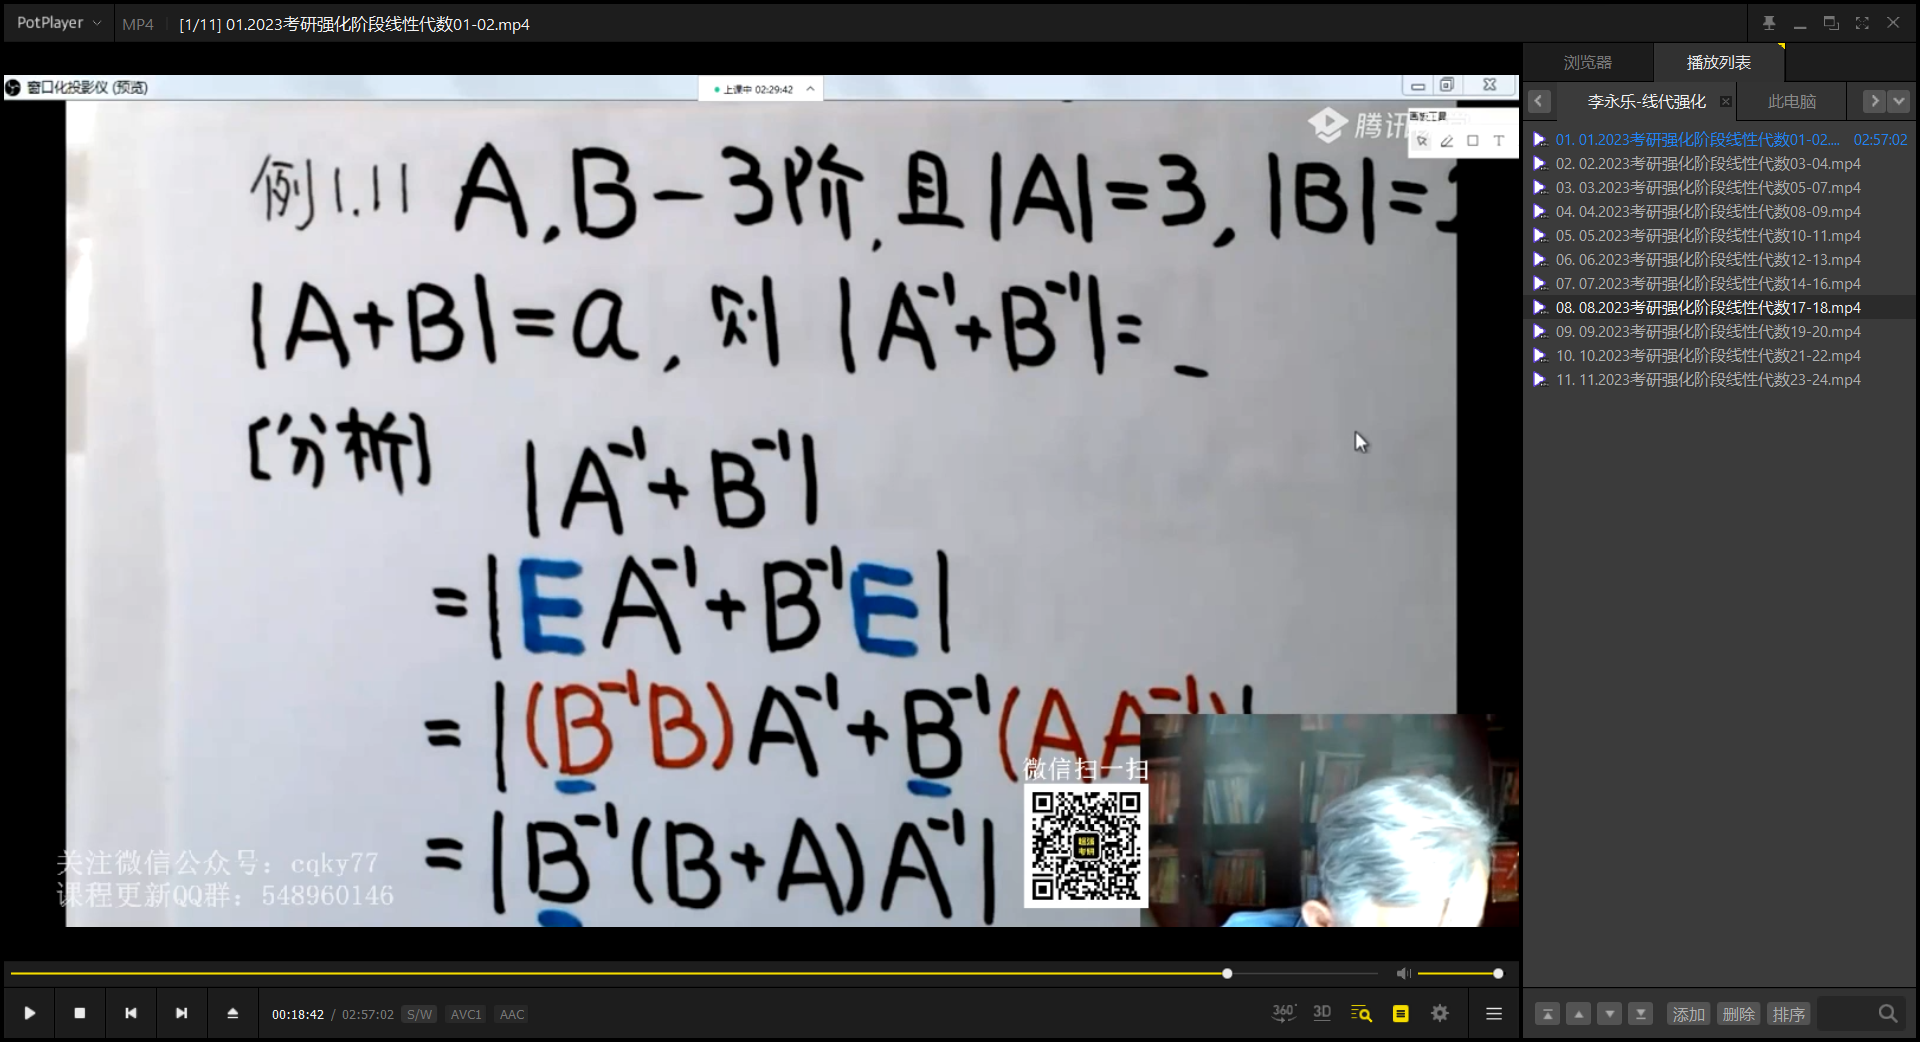 PotPlayer
MP4
[1/11] 01.2023考研强化阶段线性代数01-02.mp4
窗口化投影仪 (预览)
上课中 02:29:42
腾讯
画影工具
T
例1.11 A,B-3阶,且|A|=3,|B|=
|A+B|=a,则 |A⁻¹+B⁻¹|=_
[分析]
|A⁻¹+B⁻¹|
=|EA⁻¹+B⁻¹E|
=|(B⁻¹B)A⁻¹+B⁻¹(AA⁻¹)|
=|B⁻¹(B+A)A⁻¹|
微信扫一扫
关注微信公众号：cqky77
课程更新QQ群：548960146
浏览器
播放列表
李永乐-线代强化
此电脑
01. 01.2023考研强化阶段线性代数01-02.... 02:57:02
02. 02.2023考研强化阶段线性代数03-04.mp4
03. 03.2023考研强化阶段线性代数05-07.mp4
04. 04.2023考研强化阶段线性代数08-09.mp4
05. 05.2023考研强化阶段线性代数10-11.mp4
06. 06.2023考研强化阶段线性代数12-13.mp4
07. 07.2023考研强化阶段线性代数14-16.mp4
08. 08.2023考研强化阶段线性代数17-18.mp4
09. 09.2023考研强化阶段线性代数19-20.mp4
10. 10.2023考研强化阶段线性代数21-22.mp4
11. 11.2023考研强化阶段线性代数23-24.mp4
00:18:42 / 02:57:02 S/W AVC1 AAC
360° 3D
添加 删除 排序